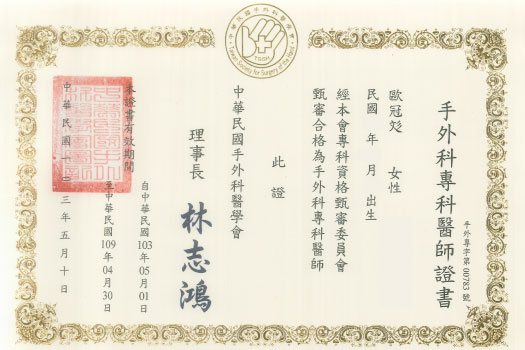 手外科專科醫師證書
手外專字第00783號
歐冠彣　女性
民國　年　月　出生
經本會專科資格甄審委員會
甄審合格為手外科專科醫師
此證
中華民國手外科醫學會
理事長　林志鴻
本證書有效期間
自中華民國103年05月01日
至中華民國109年04月30日
中華民國一〇三年五月十日